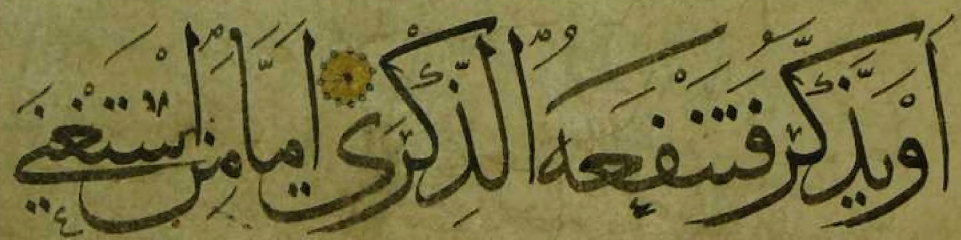 اَوْ يَذَّكَّرُ فَتَنْفَعَهُ الذِّكْرٰى اَمَّا مَنِ اسْتَغْنٰى